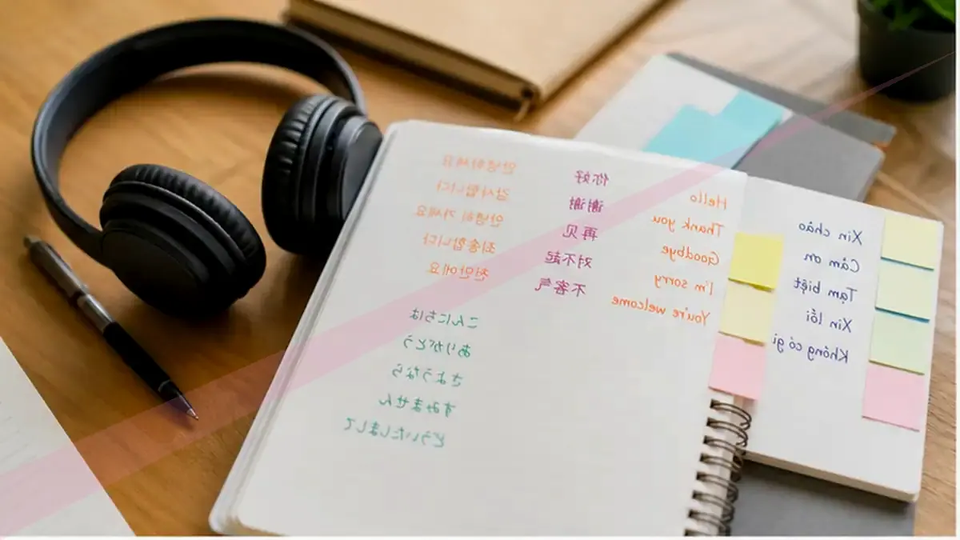 안녕하세요
감사합니다
안녕히 가세요
죄송합니다
천만에요
你好
谢谢
再见
对不起
不客气
Hello
Thank you
Goodbye
I'm sorry
You're welcome
こんにちは
ありがとう
さようなら
すみません
どういたしまして
Xin chào
Cảm ơn
Tạm biệt
Xin lỗi
Không có gì